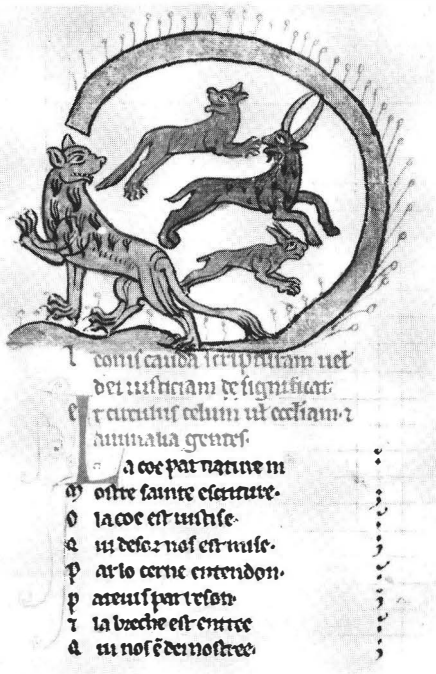 Leonis cauda scripturam vel
dei iusticiam designificat.
et circulus celum vel ecclesiam. 7
animalia gentes.
La coe par nature m
Mostre sainte escriture.
O la coe est iustise.
Qui desor nos est mise.
Par lo cerne entendon.
Pareuis par reson
7 la breche est entree
Qui nos est demostree.